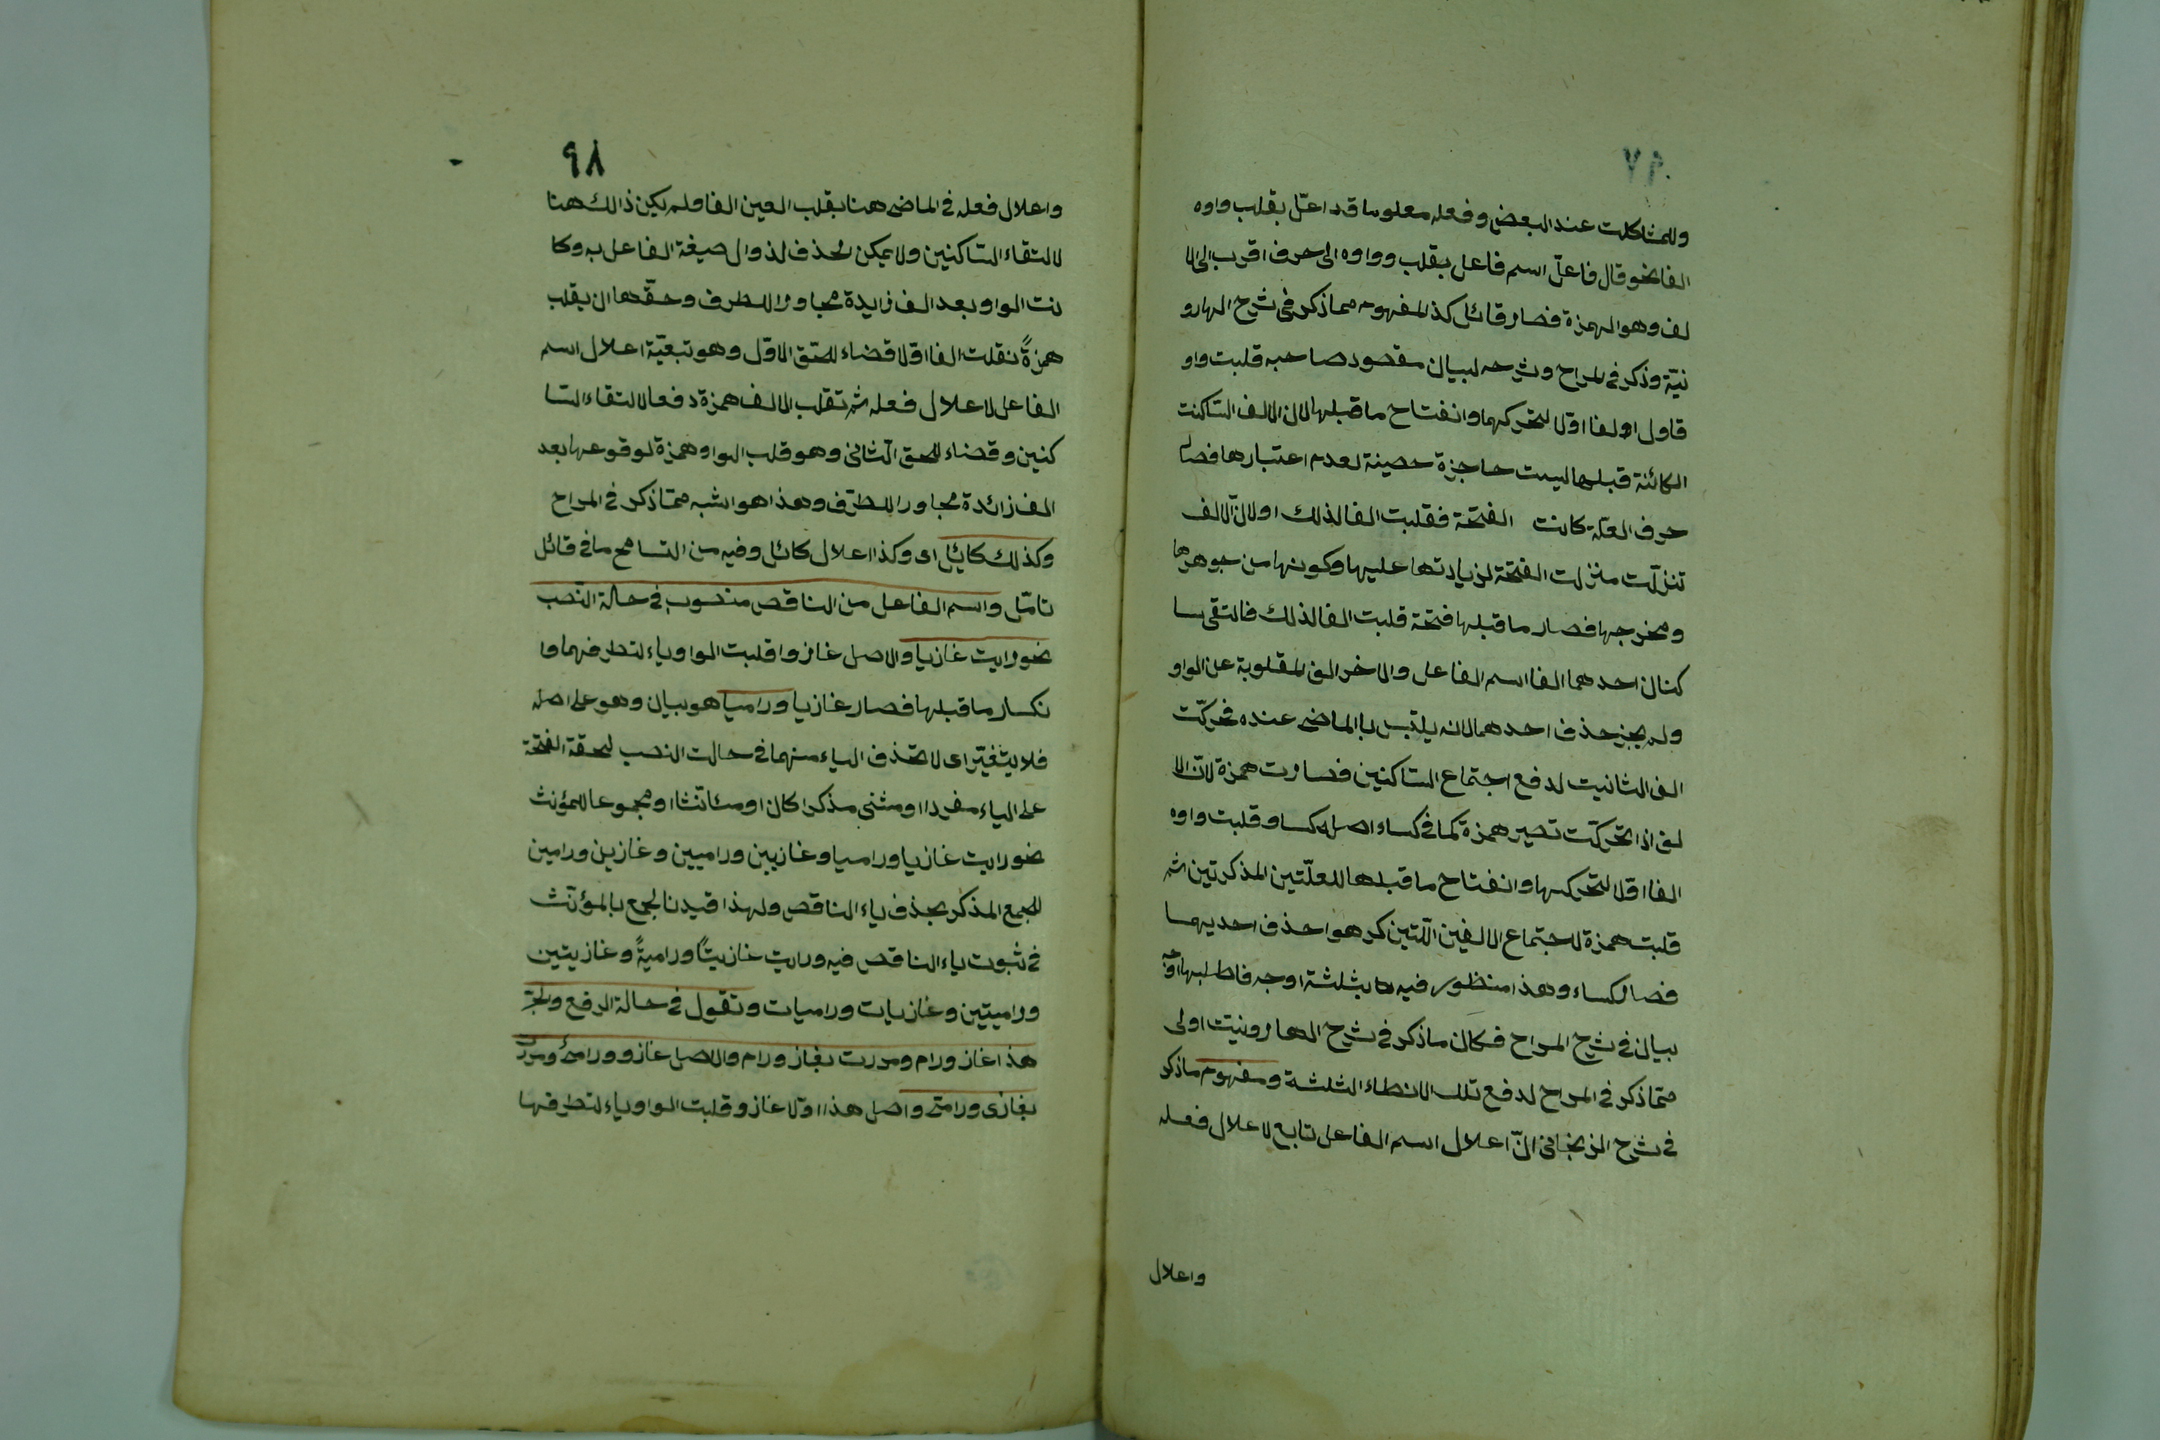 ٩٧
وللمشاكلت عند البعض وفعله معلوما قد اعلّ بقلب واوه
الفا نحو قال فاعلّ اسم فاعل بقلب وواوه الى حرف اقرب الى الا
لف وهو الهمزة فصار قائل كذ المفهوم مما ذكر فى شرح الهارو
نيّة وذكر فى المراح وشرحه لبيان مقصود صاحبه قلبت واو
قاول الفا اوّلا لتحركهما وانفتاح ما قبلها لان الالف الساكنت
الكائنة قبلها ليست حاجزة حصينة لعدم اعتبارها فصار
حرف العلّة كانت الفتحة فقلبت الفا لذلك اولان الالف
تنزلّت منزلت الفتحة لزيادتها عليها وكونها من جوهرها
ومخرجها فصار ما قبلها فتحة قلبت الفا لذلك فالتقى سا
كنان احدهما الفا اسم الفاعل والاخر الف المقلوبة عن الواو
ولم يجز حذف احدهما لانه يلتبس بالماضى عنده فحركّت
الف الثانيت لدفع اجتماع الساكنين فصارت همزة لانّ الا
لف اذا تحركّت تصير همزة كما فى كساء اصله كساو قلبت واوه
الفا اوّلا لتحركها وانفتاح ما قبلها للعلّتين المذكرتين ثم
قلبت همزة لاجتماع الالفين اللّتين كرهوا حذف احديهما
فصار كساء وهذا منظور فيه بثلثة اوجه فاطلبها
بيان فى شرح المراح فكان ما ذكر فى شرح الهارونيّت اولى
ممّا ذكر فى المراح لدفع تلك الانظاء الثلثة ومفهوم ما ذكر
فى شرح الزنجانى انّ اعلال اسم الفاعل تابع لاعلال فعله
واعلال
٩٨
واعلال فعله فى الماضى هنا بقلب العين الفا ولم يكن ذالك هنا
لالتقاء الساكنين ولا يمكن الحذف لذوال صيغة الفاعل به وكا
نت الواو بعد الف زايدة مجاورا للطرف وحقّها ان يقلب
همزةً نقلت الفا اوّلا قضاء للحق الاوّل وهو تبعيّة اعلال اسم
الفاعل لاعلال فعله ثم تقلب الالف همزة دفعا لالتقاء السا
كنين وقضاء للحق الثانى وهو قلب الواو همزة لوقوعها بعد
الف زائدة مجاورا للطرف وهذا هو اشبه ممّا ذكر فى المراح
وكذلك كايل اى وكذا اعلال كائل وفيه من التسامح ما فى قائل
تامّل واسم الفاعل من الناقص منصوب فى حالة النصب
نحو رايت غازيا والاصل غازوا قلبت الواو ياء لتطرفهما وا
نكسار ما قبلها فصار غازيا وراميا هو بيان وهو على اصله
فلا يتغيّر اى لا تحذف الياء منهما فى حالت النصب لخفة الفتحة
على الياء مفردا او مثنى مذكرا كان او مئانّثا او مجموعا للمؤنث
نحو رايت غازيا وراميا وغازيين وراميين وغازين ورامين
للجمع المذكر بحذف ياء الناقص ولهذا قيدنا لجمع بالمؤنّث
فى ثبوت ياء الناقص فيه ورايت غازيتًا وراميةً وغازيتين
وراميتين وغازيات وراميات وتقول فى حالة الرفع والجرّ
هذا غاز ورام ومررت بغاز ورام والاصل غازو ورامىٌ ومررت
بغازى ورامى واصل هذا اوّلا غازو قلبت الواو ياء لتطرفها